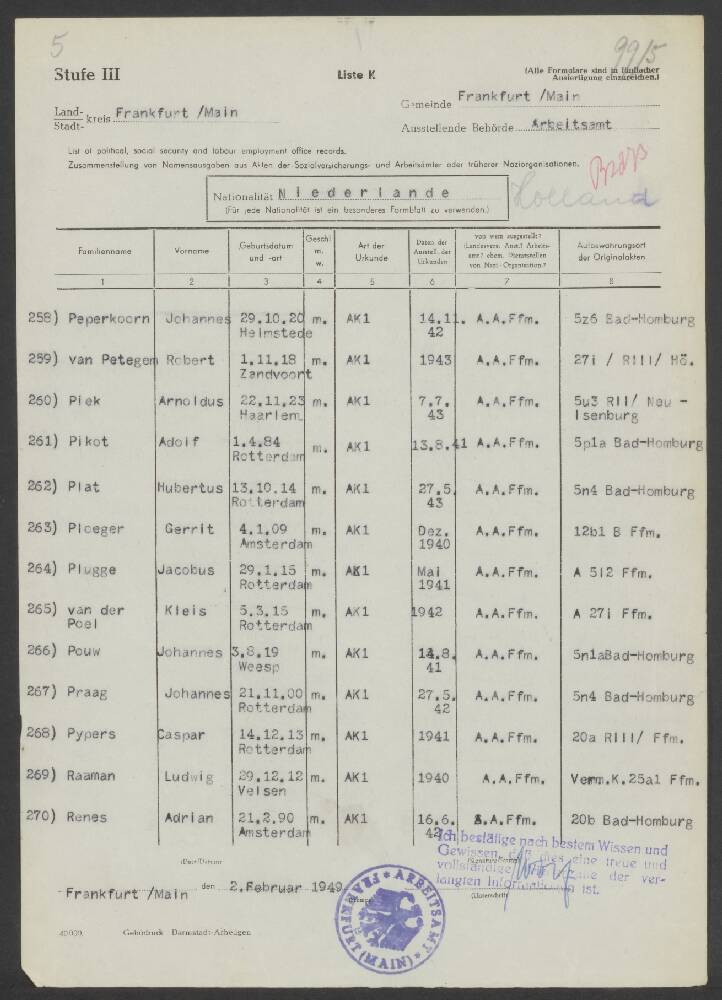 5
99/5
Stufe III
Liste K
(Alle Formulare sind in fünffacher
Ausfertigung einzureichen.)
Land-
Stadt- kreis Frankfurt /Main
Gemeinde Frankfurt /Main
Ausstellende Behörde Arbeitsamt
List of political, social security and labour employment office records.
Zusammenstellung von Namensausgaben aus Akten der Sozialversicherungs- und Arbeitsämter oder früherer Naziorganisationen.
Nationalität Niederlande
(Für jede Nationalität ist ein besonderes Formblatt zu verwenden.)
Holland
Familienname Vorname Geburtsdatum und -ort Geschl. m. w. Art der Urkunde Daten der Ausstell. der Urkunden von wem ausgestellt? (Landesvers. Anst.? Arbeitsamt? ehem. Dienststellen von Nazi-Organisation.? Aufbewahrungsort der Originalakten
1 2 3 4 5 6 7 8
258) Peperkoorn Johannes 29.10.20 m. AK1 14.11. A.A.Ffm. 5z6 Bad-Homburg
Heimstede 42
259) van Petegem Robert 1.11.18 m. AK1 1943 A.A.Ffm. 27i / RIII/ Hö.
Zandvoort
260) Piek Arnoldus 22.11.23 m. AK1 7.7. A.A.Ffm. 5u3 RII/ Neu -
Haarlem 43 Isenburg
261) Pikot Adolf 1.4.84 m. AK1 13.8.41 A.A.Ffm. 5p1a Bad-Homburg
Rotterdam
262) Plat Hubertus 13.10.14 m. AK1 27.5. A.A.Ffm. 5n4 Bad-Homburg
Rotterdam 43
263) Ploeger Gerrit 4.1.09 m. AK1 Dez. A.A.Ffm. 12b1 B Ffm.
Amsterdam 1940
264) Plugge Jacobus 29.1.15 m. AK1 Mai A.A.Ffm. A 5i2 Ffm.
Rotterdam 1941
265) van der Kleis 5.3.15 m. AK1 1942 A.A.Ffm. A 27i Ffm.
Poel Rotterdam
266) Pouw Johannes 3.8.19 m. AK1 14.8. A.A.Ffm. 5n1aBad-Homburg
Weesp 41
267) Praag Johannes 21.11.00 m. AK1 27.5. A.A.Ffm. 5n4 Bad-Homburg
Rotterdam 42
268) Pypers Caspar 14.12.13 m. AK1 1941 A.A.Ffm. 20a RIII/ Ffm.
Rotterdam
269) Raaman Ludwig 29.12.12 m. AK1 1940 A.A.Ffm. Verm.K.25a1 Ffm.
Velsen
270) Renes Adrian 21.2.90 m. AK1 16.6. A.A.Ffm. 20b Bad-Homburg
Amsterdam 42
Ich bestätige nach bestem Wissen und
Gewissen, daß dies eine treue und
vollständige der ver-
langten Informationen ist.
(Date/Datum)
Frankfurt /Main den 2.Februar 1949
(Unterschrift)
ARBEITSAMT
FRANKFURT (MAIN)